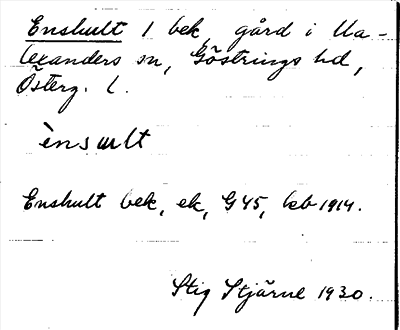 Enshult 1 bek, gård i Va-
lexanders sn, Göstrings hd,
Österg. l.
ènsult
Enshult bek, ek, G 45, kb 1914.
Stig Stjärne 1930.